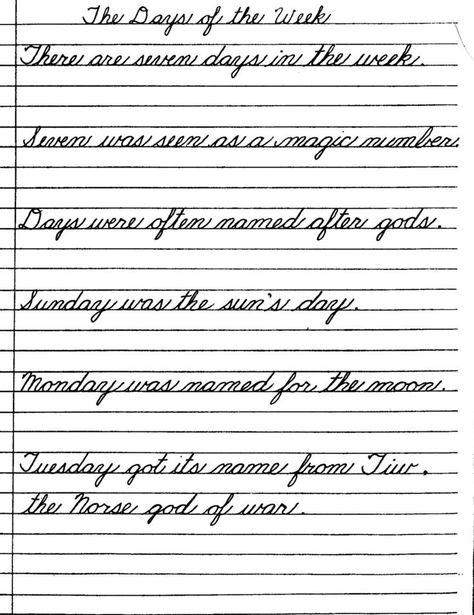 The Days of the Week
There are seven days in the week.
Seven was seen as a magic number.
Days were often named after gods.
Sunday was the sun's day.
Monday was named for the moon.
Tuesday got its name from Tiw,
the Norse god of war.